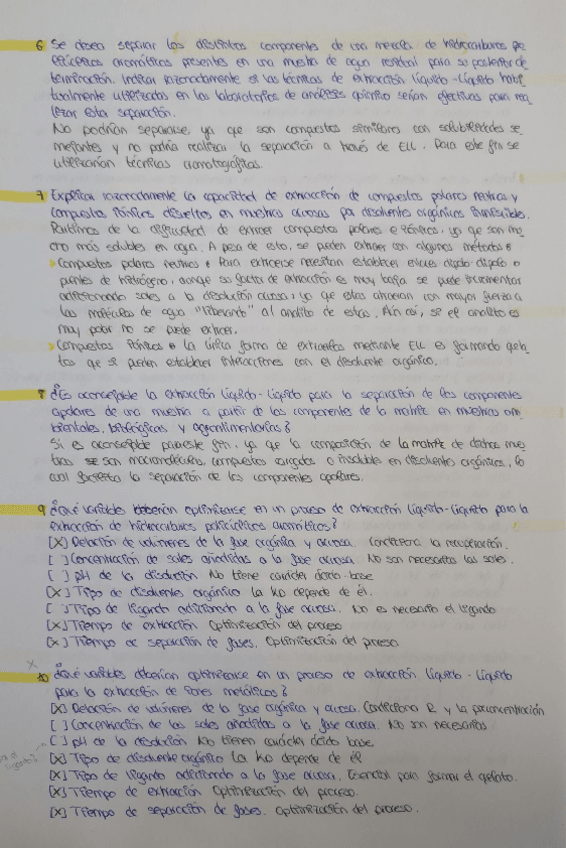 6 Se desea separar los distintos componentes de una mezcla de hidrocarburos po
licíclicos aromáticos presentes en una muestra de agua residual para su posterior de
terminación. Indicar razonadamente si las técnicas de extracción líquido-líquido habi
tualmente utilizadas en los laboratorios de análisis químico serían efectivas para rea
lizar esta separación.
No podrían separarse, ya que son compuestos similares con solubilidades se
mejantes y no podría realizar la separación a través de ELL. Para este fin se
utilizarían técnicas cromatográficas.
7 Explicar razonadamente la capacidad de extracción de compuestos polares neutros y
compuestos iónicos disueltos en muestras acuosas por disolventes orgánicos inmiscibles.
Partimos de la dificultad de extraer compuestos polares e iónicos, ya que son mu
cho más solubles en agua. A pesar de esto, se pueden extraer con algunos métodos:
Compuestos polares neutros: Para extraerse necesitan establecer enlaces dipolo-dipolo o
puentes de hidrógeno, aunque su factor de extracción es muy bajo se puede incrementar
adicionando sales a la disolución acuosa, ya que estas atraerían con mayor fuerza a
las moléculas de agua "liberando" al analito de estas. Aún así, si el analito es
muy polar no se puede extraer.
Compuestos iónicos: La única forma de extraerlos mediante ELL es formando quela
tos que si pueden establecer interacciones con el disolvente orgánico.
8 ¿Es aconsejable la extracción líquido-líquido para la separación de los componentes
apolares de una muestra a partir de los componentes de la matriz en muestras am
bientales, biológicas y agroalimentarias?
Si es aconsejable para este fin, ya que la composición de la matriz de dichas mues
tras son macromoléculas, compuestos cargados o insolubles en disolventes orgánicos, lo
cual facilita la separación de los componentes apolares.
9 ¿Qué variables deberían optimizarse en un proceso de extracción líquido-líquido para la
extracción de hidrocarburos policíclicos aromáticos?
[X] Relación de volúmenes de la fase orgánica y acuosa. Condiciona la recuperación.
[ ] Concentración de sales añadidas a la fase acuosa No son necesarias las sales.
[ ] pH de la disolución No tiene carácter ácido-base
[X] Tipo de disolvente orgánico La KD depende de él.
[ ] Tipo de ligando adicionado a la fase acuosa. No es necesario el ligando
[X] Tiempo de extracción Optimización del proceso
[X] Tiempo de separación de fases. Optimización del proceso
X
10 ¿Qué variables deberían optimizarse en un proceso de extracción líquido-líquido
para la extracción de iones metálicos?
[X] Relación de volúmenes de la fase orgánica y acuosa. Condiciona R y la preconcentración
[ ] Concentración de las sales añadidas a la fase acuosa. No son necesarias
[ ] pH de la disolución No tienen carácter ácido base
ligando?
[X] Tipo de disolvente orgánico La KD depende de él
[X] Tipo de ligando adicionado a la fase acuosa. Esencial para formar el quelato.
[X] Tiempo de extracción Optimización del proceso
[X] Tiempo de separación de fases. Optimización del proceso.